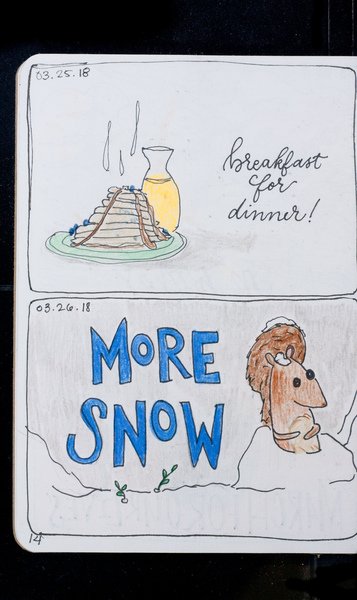 03.25.18
breakfast
for
dinner!
03.26.18
MORE
SNOW
14